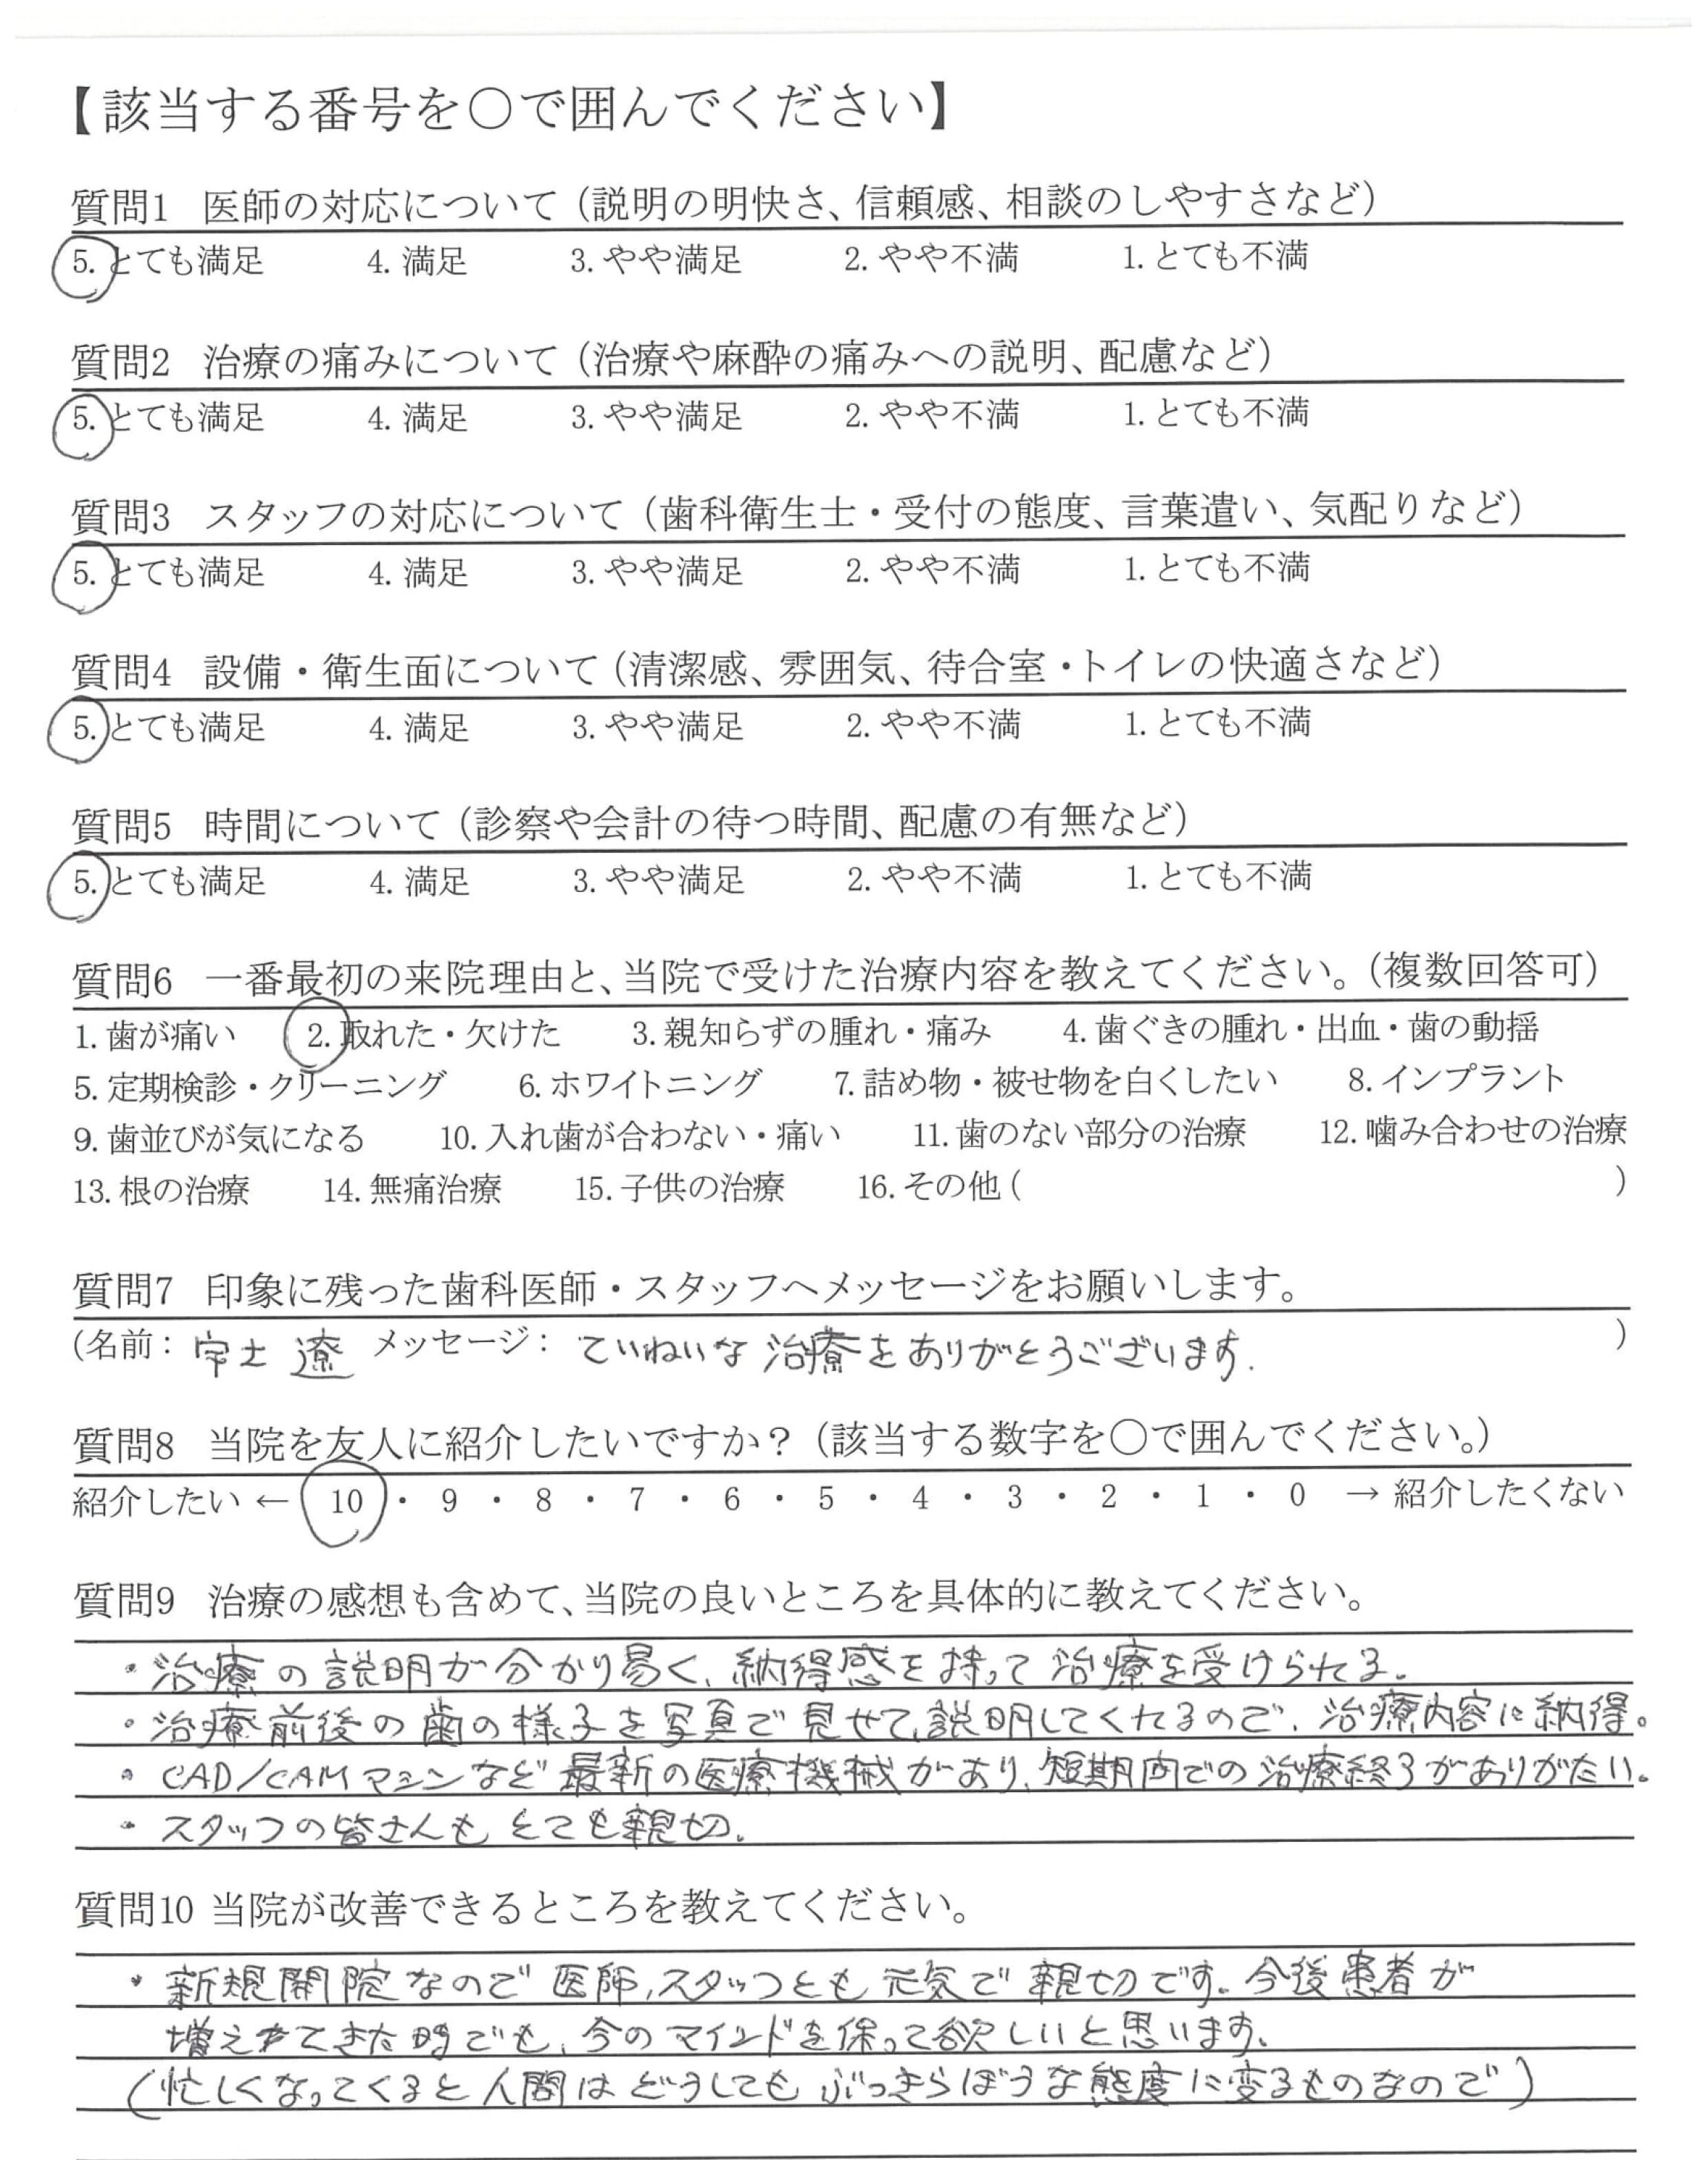 【該当する番号を〇で囲んでください】
質問1 医師の対応について（説明の明快さ、信頼感、相談のしやすさなど）
5. とても満足 4. 満足 3. やや満足 2. やや不満 1. とても不満
質問2 治療の痛みについて（治療や麻酔の痛みへの説明、配慮など）
5. とても満足 4. 満足 3. やや満足 2. やや不満 1. とても不満
質問3 スタッフの対応について（歯科衛生士・受付の態度、言葉遣い、気配りなど）
5. とても満足 4. 満足 3. やや満足 2. やや不満 1. とても不満
質問4 設備・衛生面について（清潔感、雰囲気、待合室・トイレの快適さなど）
5. とても満足 4. 満足 3. やや満足 2. やや不満 1. とても不満
質問5 時間について（診察や会計の待つ時間、配慮の有無など）
5. とても満足 4. 満足 3. やや満足 2. やや不満 1. とても不満
質問6 一番最初の来院理由と、当院で受けた治療内容を教えてください。（複数回答可）
1. 歯が痛い 2. 取れた・欠けた 3. 親知らずの腫れ・痛み 4. 歯ぐきの腫れ・出血・歯の動揺
5. 定期検診・クリーニング 6. ホワイトニング 7. 詰め物・被せ物を白くしたい 8. インプラント
9. 歯並びが気になる 10. 入れ歯が合わない・痛い 11. 歯のない部分の治療 12. 噛み合わせの治療
13. 根の治療 14. 無痛治療 15. 子供の治療 16. その他（ ）
質問7 印象に残った歯科医師・スタッフへメッセージをお願いします。
（名前： 宇土 遼 メッセージ： ていねいな治療をありがとうございます. ）
質問8 当院を友人に紹介したいですか？（該当する数字を〇で囲んでください。）
紹介したい ← 10 ・ 9 ・ 8 ・ 7 ・ 6 ・ 5 ・ 4 ・ 3 ・ 2 ・ 1 ・ 0 → 紹介したくない
質問9 治療の感想も含めて、当院の良いところを具体的に教えてください。
・治療の説明が分かり易く、納得感を持って治療を受けられる。
・治療前後の歯の様子を写真で見せて、説明してくれるので、治療内容に納得。
・CAD/CAMマシンなど最新の医療機械があり、短期間での治療終了がありがたい。
・スタッフの皆さんもとても親切。
質問10 当院が改善できるところを教えてください。
・新規開院なので医師、スタッフとも元気で親切です。今後患者が
増えてきた時でも、今のマインドを保って欲しいと思います。
（忙しくなってくると人間はどうしてもぶっきらぼうな態度に変るものなので）